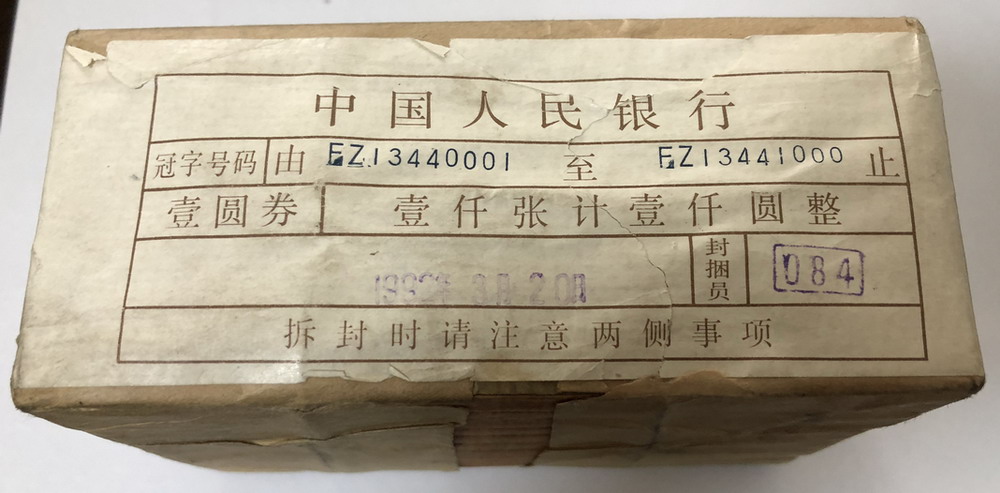 中国人民银行
冠字号码 由 EZ13440001 至 EZ13441000 止
壹圆券 壹仟张计壹仟圆整
封捆员 084
拆封时请注意两侧事项